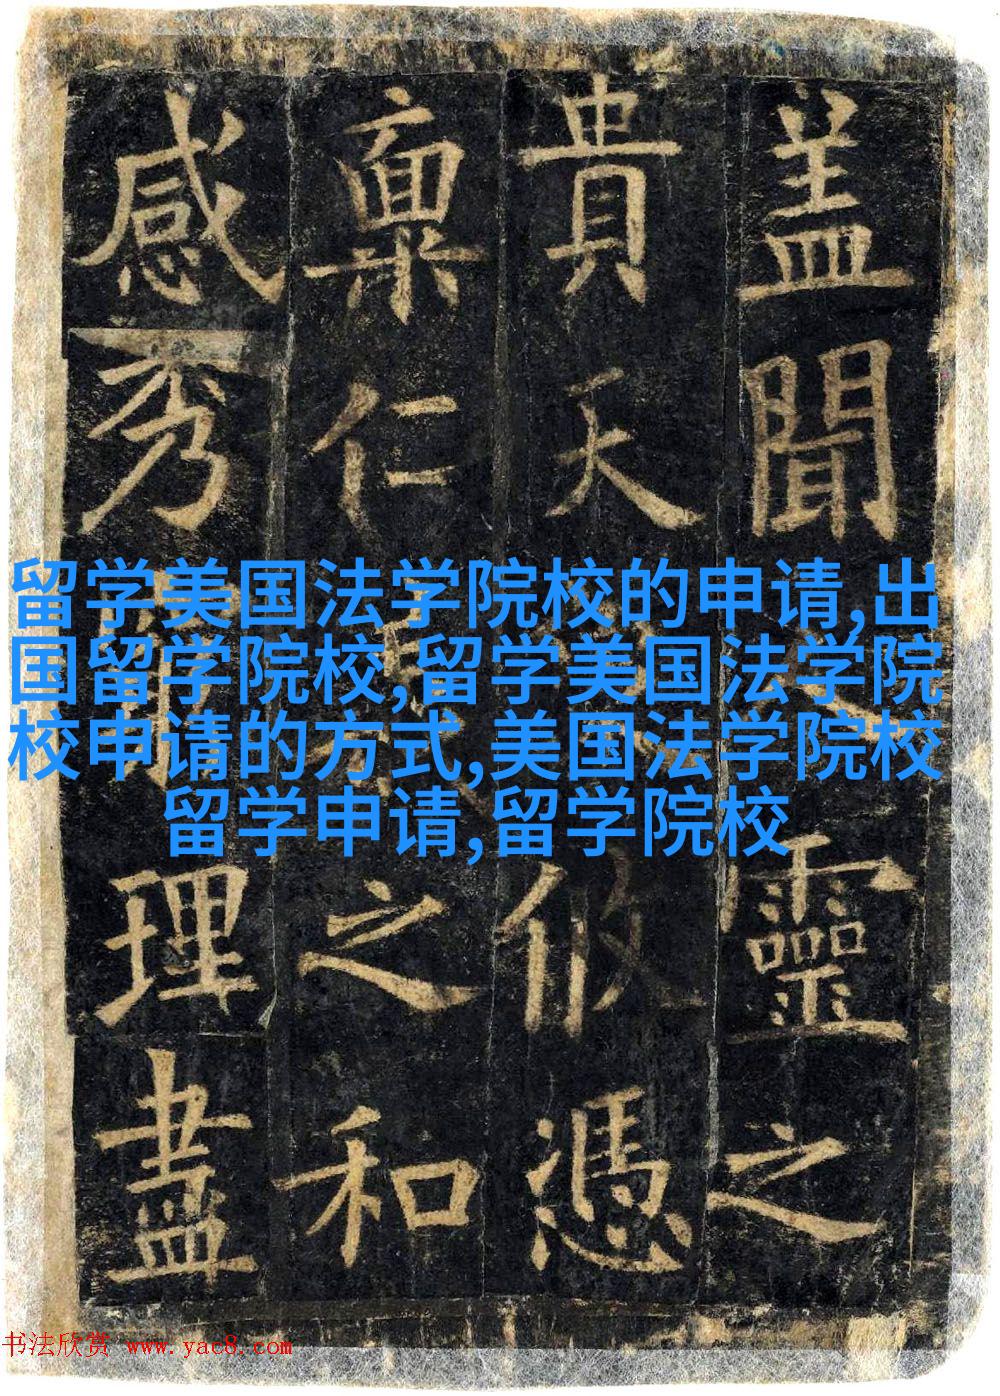 盖聞靈之
貴天攸憑
稟仁之和
感秀理盡
留学美国法学院校的申请,出
国留学院校,留学美国法学院
校申请的方式,美国法学院校
留学申请,留学院校
书法欣赏 www.yac8.com